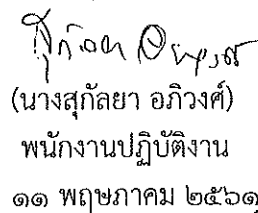 (นางสุกัลยา อภิวงศ์)
พนักงานปฏิบัติงาน
๑๑ พฤษภาคม ๒๕๖๑